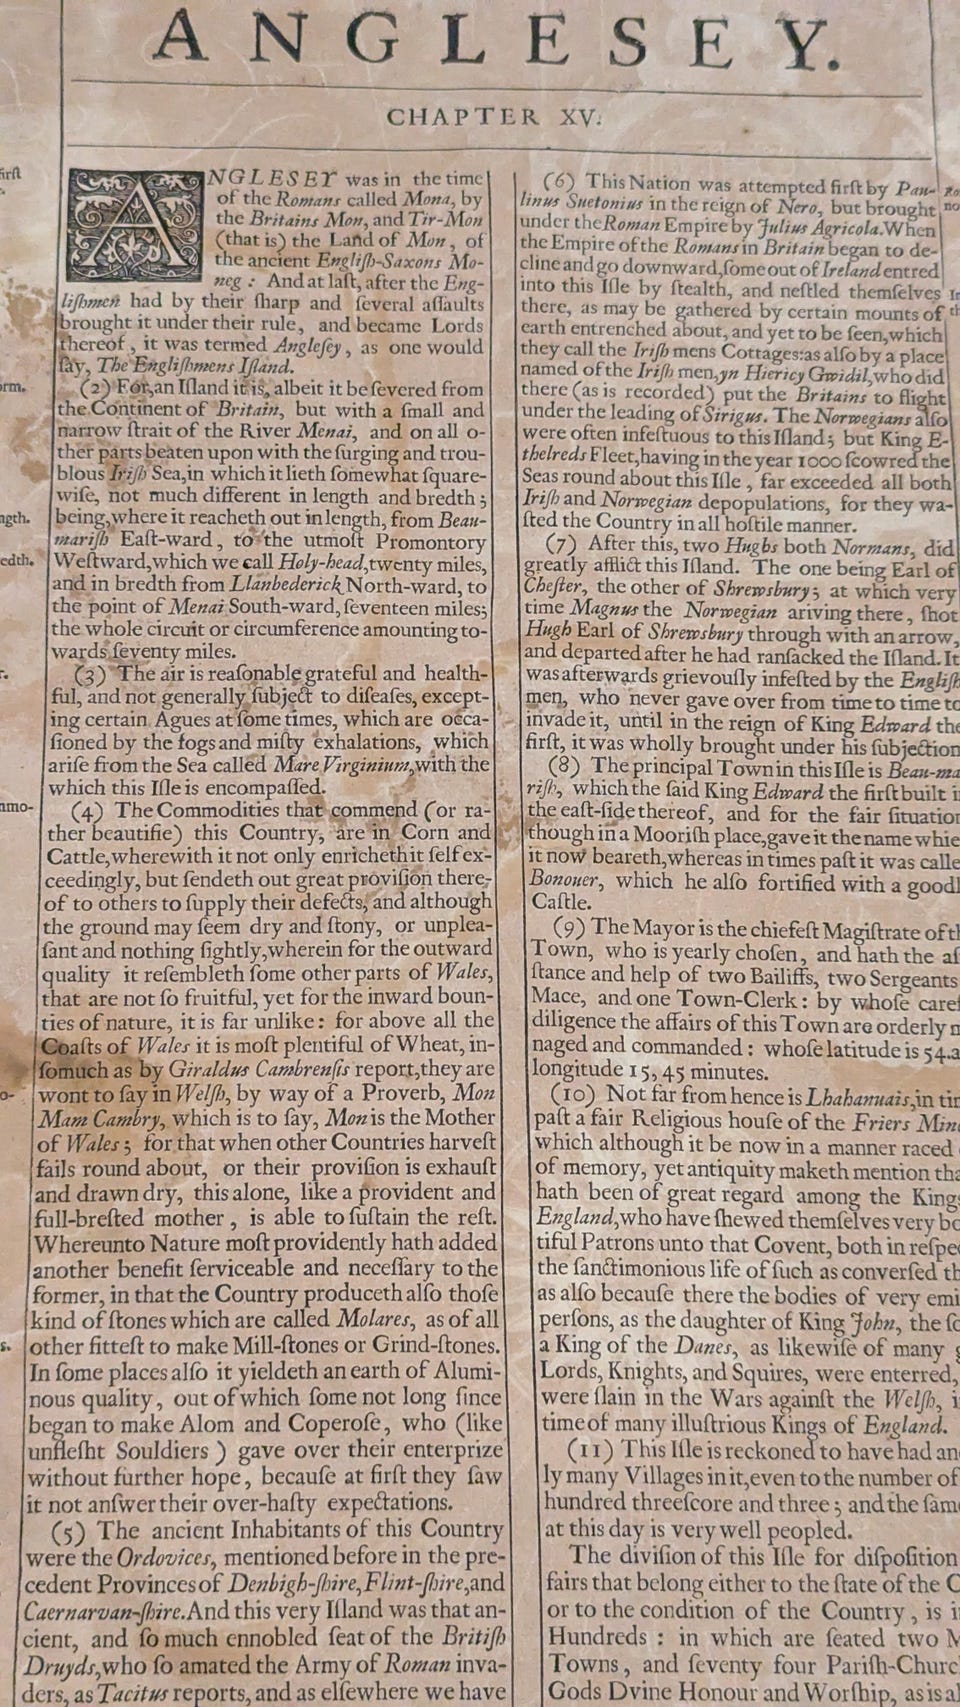 ANGLESEY.
CHAPTER XV.
ANGLESEY was in the time
of the Romans called Mona, by
the Britains Mon, and Tir-Mon
(that is) the Land of Mon, of
the ancient Engliſh-Saxons Mo-
neg: And at laſt, after the Eng-
liſhmen had by their ſharp and ſeveral aſſaults
brought it under their rule, and became Lords
thereof, it was termed Angleſey, as one would
ſay, The Engliſhmens Iſland.
(2) For, an Iſland it is, albeit it be ſevered from
the Continent of Britain, but with a ſmall and
narrow ſtrait of the River Menai, and on all o-
ther parts beaten upon with the ſurging and trou-
blous Iriſh Sea, in which it lieth ſomewhat ſquare-
wiſe, not much different in length and bredth;
being, where it reacheth out in length, from Beau-
mariſh Eaſt-ward, to the utmoſt Promontory
Weſtward, which we call Holy-head, twenty miles,
and in bredth from Llanbederick North-ward, to
the point of Menai South-ward, ſeventeen miles;
the whole circuit or circumference amounting to-
wards ſeventy miles.
(3) The air is reaſonable grateful and health-
ful, and not generally ſubject to diſeaſes, except-
ing certain Agues at ſome times, which are occa-
ſioned by the fogs and miſty exhalations, which
ariſe from the Sea called Mare Virginium, with the
which this Iſle is encompaſſed.
(4) The Commodities that commend (or ra-
ther beautifie) this Country, are in Corn and
Cattle, wherewith it not only enricheth it ſelf ex-
ceedingly, but ſendeth out great proviſion there-
of to others to ſupply their defects, and although
the ground may ſeem dry and ſtony, or unplea-
ſant and nothing ſightly, wherein for the outward
quality it reſembleth ſome other parts of Wales,
that are not ſo fruitful, yet for the inward boun-
ties of nature, it is far unlike: for above all the
Coaſts of Wales it is moſt plentiful of Wheat, in-
ſomuch as by Giraldus Cambrenſis report, they are
wont to ſay in Welſh, by way of a Proverb, Mon
Mam Cambry, which is to ſay, Mon is the Mother
of Wales; for that when other Countries harveſt
fails round about, or their proviſion is exhauſt
and drawn dry, this alone, like a provident and
full-breſted mother, is able to ſuſtain the reſt.
Whereunto Nature moſt providently hath added
another benefit ſerviceable and neceſſary to the
former, in that the Country produceth alſo thoſe
kind of ſtones which are called Molares, as of all
other fitteſt to make Mill-ſtones or Grind-ſtones.
In ſome places alſo it yieldeth an earth of Alumi-
nous quality, out of which ſome not long ſince
began to make Alom and Coperoſe, who (like
unfleſht Souldiers) gave over their enterprize
without further hope, becauſe at firſt they ſaw
it not anſwer their over-haſty expectations.
(5) The ancient Inhabitants of this Country
were the Ordovices, mentioned before in the pre-
cedent Provinces of Denbigh-ſhire, Flint-ſhire, and
Caernarvan-ſhire. And this very Iſland was that an-
cient, and ſo much ennobled ſeat of the Britiſh
Druyds, who ſo amated the Army of Roman inva-
ders, as Tacitus reports, and as elſewhere we have
(6) This Nation was attempted firſt by Pau-
linus Suetonius in the reign of Nero, but brought
under the Roman Empire by Julius Agricola. When
the Empire of the Romans in Britain began to de-
cline and go downward, ſome out of Ireland entred
into this Iſle by ſtealth, and neſtled themſelves
there, as may be gathered by certain mounts of
earth entrenched about, and yet to be ſeen, which
they call the Iriſh mens Cottages: as alſo by a place
named of the Iriſh men, yn Hiericy Gwidil, who did
there (as is recorded) put the Britains to flight
under the leading of Sirigus. The Norwegians alſo
were often infeſtuous to this Iſland; but King E-
thelreds Fleet, having in the year 1000 ſcowred the
Seas round about this Iſle, far exceeded all both
Iriſh and Norwegian depopulations, for they wa-
ſted the Country in all hoſtile manner.
(7) After this, two Hughs both Normans, did
greatly afflict this Iſland. The one being Earl of
Cheſter, the other of Shrewsbury; at which very
time Magnus the Norwegian ariving there, ſhot
Hugh Earl of Shrewsbury through with an arrow,
and departed after he had ranſacked the Iſland. It
was afterwards grievouſly infeſted by the Engliſh
men, who never gave over from time to time to
invade it, until in the reign of King Edward the
firſt, it was wholly brought under his ſubjection
(8) The principal Town in this Iſle is Beau-ma
riſh, which the ſaid King Edward the firſt built i
the eaſt-ſide thereof, and for the fair ſituation
though in a Mooriſh place, gave it the name whic
it now beareth, whereas in times paſt it was calle
Bonover, which he alſo fortified with a goodl
Caſtle.
(9) The Mayor is the chiefeſt Magiſtrate of th
Town, who is yearly choſen, and hath the aſ
ſtance and help of two Bailiffs, two Sergeants
Mace, and one Town-Clerk: by whoſe caref
diligence the affairs of this Town are orderly m
naged and commanded: whoſe latitude is 54. a
longitude 15, 45 minutes.
(10) Not far from hence is Lhahanuais, in tim
paſt a fair Religious houſe of the Friers Mino
which although it be now in a manner raced
of memory, yet antiquity maketh mention tha
hath been of great regard among the Kings
England, who have ſhewed themſelves very bo
tiful Patrons unto that Covent, both in reſpec
the ſanctimonious life of ſuch as converſed th
as alſo becauſe there the bodies of very emi
perſons, as the daughter of King John, the ſo
a King of the Danes, as likewiſe of many g
Lords, Knights, and Squires, were enterred,
were ſlain in the Wars againſt the Welſh, i
time of many illuſtrious Kings of England.
(11) This Iſle is reckoned to have had an
ly many Villages in it, even to the number of
hundred threeſcore and three; and the ſame
at this day is very well peopled.
The diviſion of this Iſle for diſpoſition
fairs that belong either to the ſtate of the C
or to the condition of the Country, is i
Hundreds: in which are ſeated two M
Towns, and ſeventy four Pariſh-Churc
Gods Dvine Honour and Worſhip, as is al